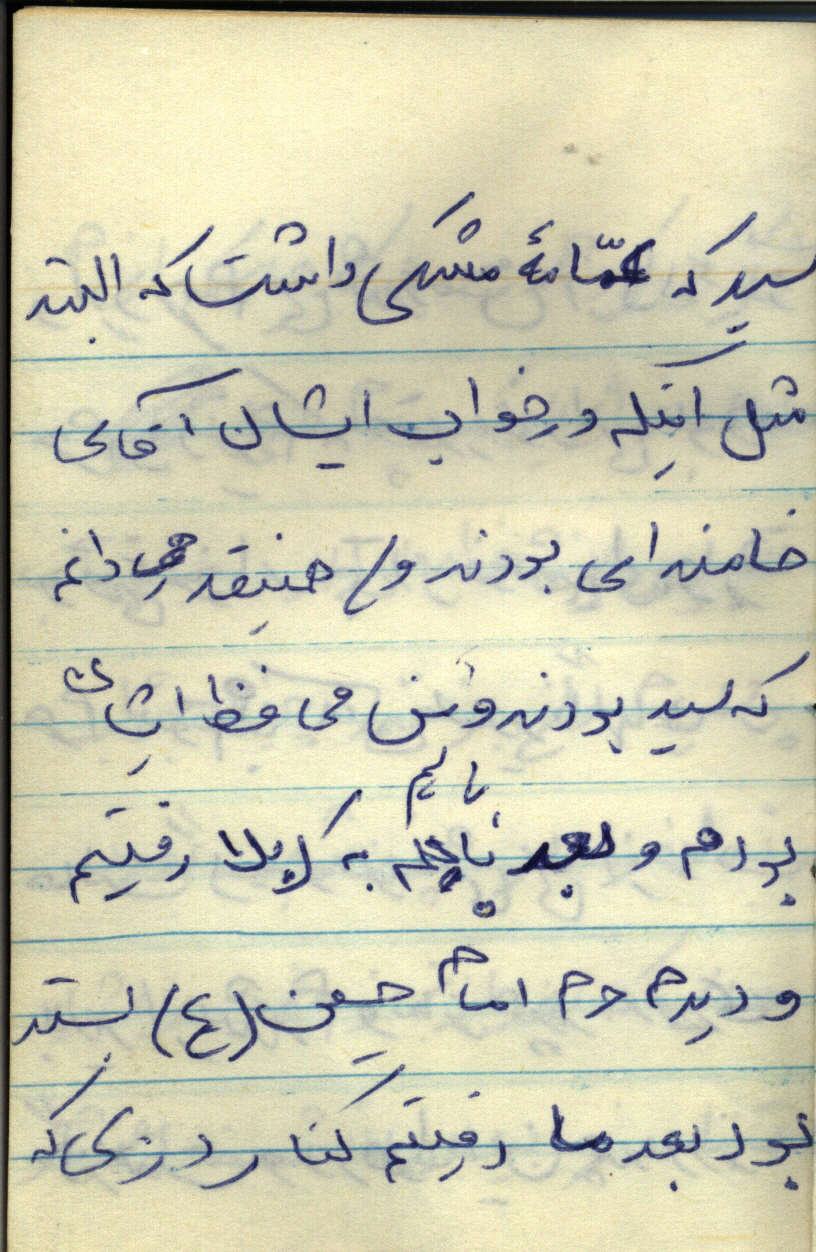 سید که عمّامهٔ مشکی داشت که البته
مثل اینکه در خواب ایشان آقای
خامنه‌ای بودند و همینقدر می‌دانم
که سید بودند و من محافظ ایشان
با هم
بودم و بعد باهم به کربلا رفتیم
و دیدم حرم امام حسین (ع) بسته
بود بعد ما رفتیم کنار دری که